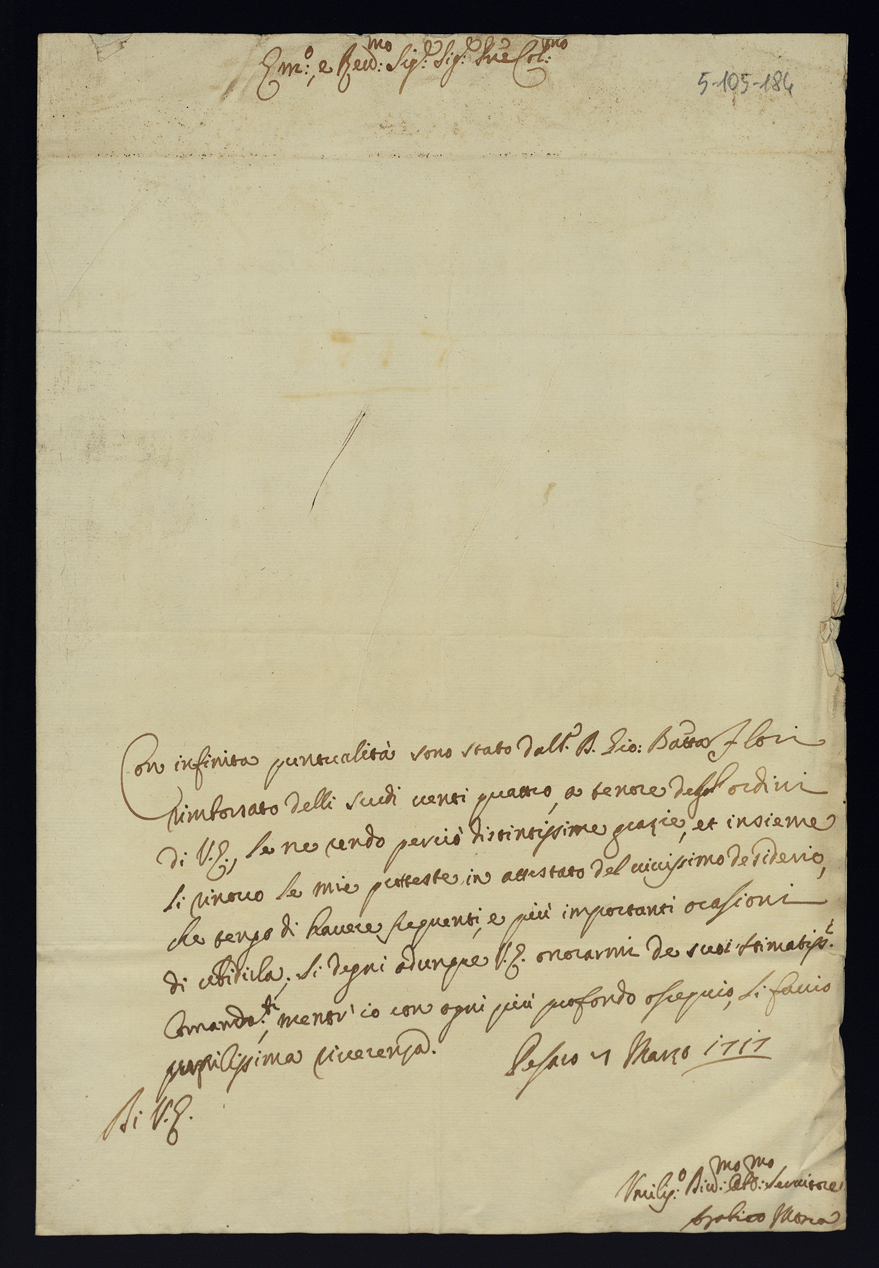 Em:o, e Reud:mo Sig:e Sig:e Pne Col:mo
5-105-184
Con infinita puntualità sono stato dall' S. Gio: Batta Flori
rimborsato delli scudi uenti quattro, a tenore degl' ordini
di V.E., Le ne rendo perciò distintissime grazie, et insieme
Li rinouo le mie proteste, in attestato del uiuissimo desiderio,
che tengo di hauere frequenti, e più importanti ocasioni
di ubidirla; Si degni adunque V.E. onorarmi de suoi stimatiss:i
Comanda:ti, mentr' io con ogni più profondo ossequio, Li faccio
umilissima riuerenza.
Pesaro 7 Marzo 1717
Di V.E.
Vmiliss:o Diu:mo Obl:mo Seruitore